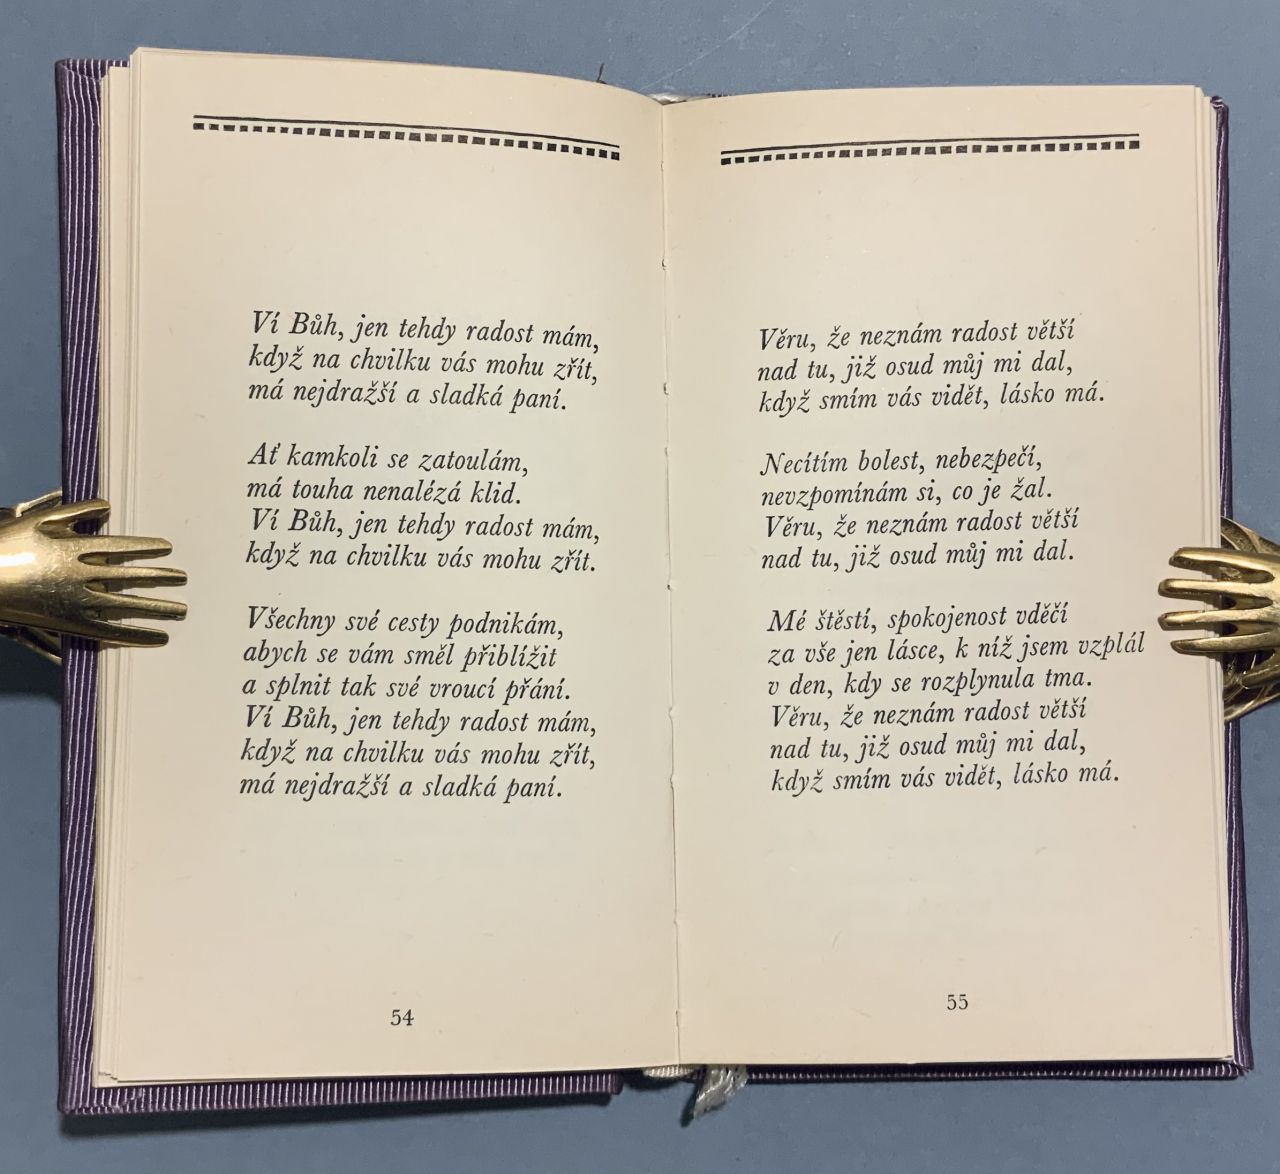 Ví Bůh, jen tehdy radost mám,
když na chvilku vás mohu zřít,
má nejdražší a sladká paní.
Ať kamkoli se zatoulám,
má touha nenalézá klid.
Ví Bůh, jen tehdy radost mám,
když na chvilku vás mohu zřít.
Všechny své cesty podnikám,
abych se vám směl přiblížit
a splnit tak své vroucí přání.
Ví Bůh, jen tehdy radost mám,
když na chvilku vás mohu zřít,
má nejdražší a sladká paní.
54
Věru, že neznám radost větší
nad tu, již osud můj mi dal,
když smím vás vidět, lásko má.
Necítím bolest, nebezpečí,
nevzpomínám si, co je žal.
Věru, že neznám radost větší
nad tu, již osud můj mi dal.
Mé štěstí, spokojenost vděčí
za vše jen lásce, k níž jsem vzplál
v den, kdy se rozplynula tma.
Věru, že neznám radost větší
nad tu, již osud můj mi dal,
když smím vás vidět, lásko má.
55